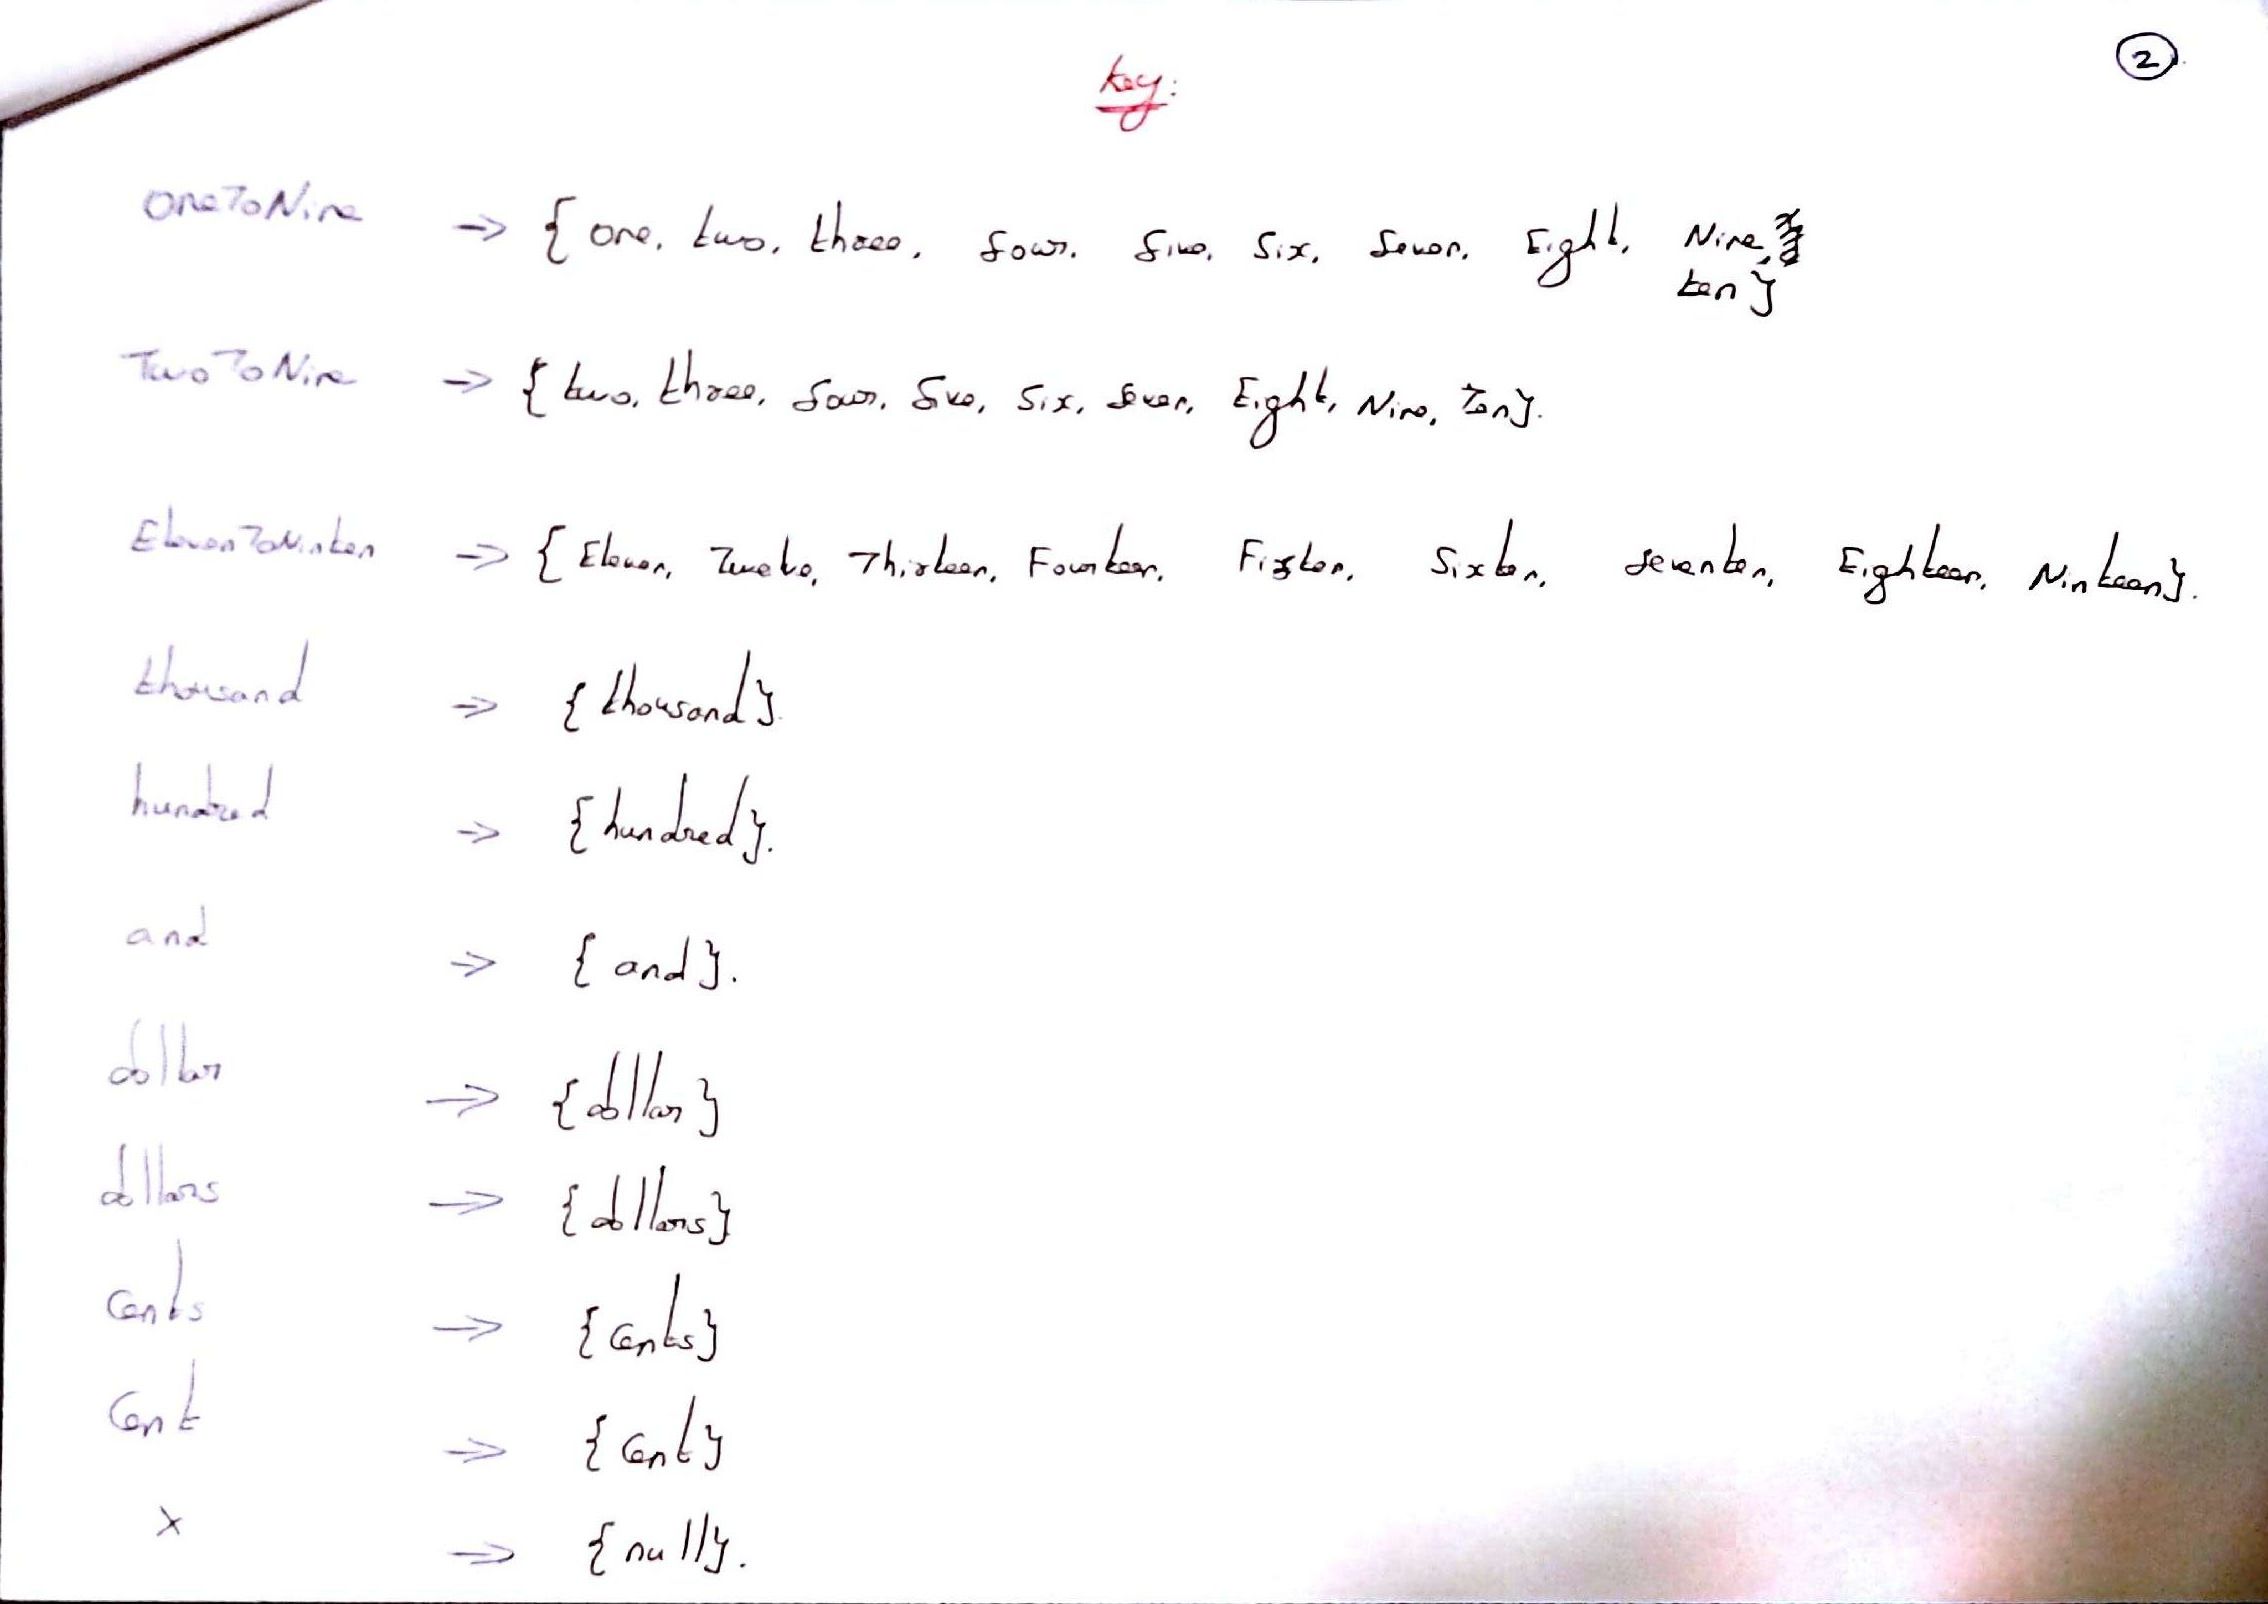 Key:
2
OneToNine => { one, two, three, four, five, Six, Seven, Eight, Nine,
ten }
TwoToNine => { two, three, four, five, Six, Seven, Eight, Nine, Ten}.
ElevenToNinten => { Eleven, Twelve, Thirteen, Fourteen, Fiften, Sixten, seventen, Eighteen, Ninteen}.
thousand => { thousand}.
hundred => {hundred}.
and => { and}.
dollar => {dollar}
dollars => {dollars}
Cents => {Cents}
Cent => {Cent}
x => {null}.